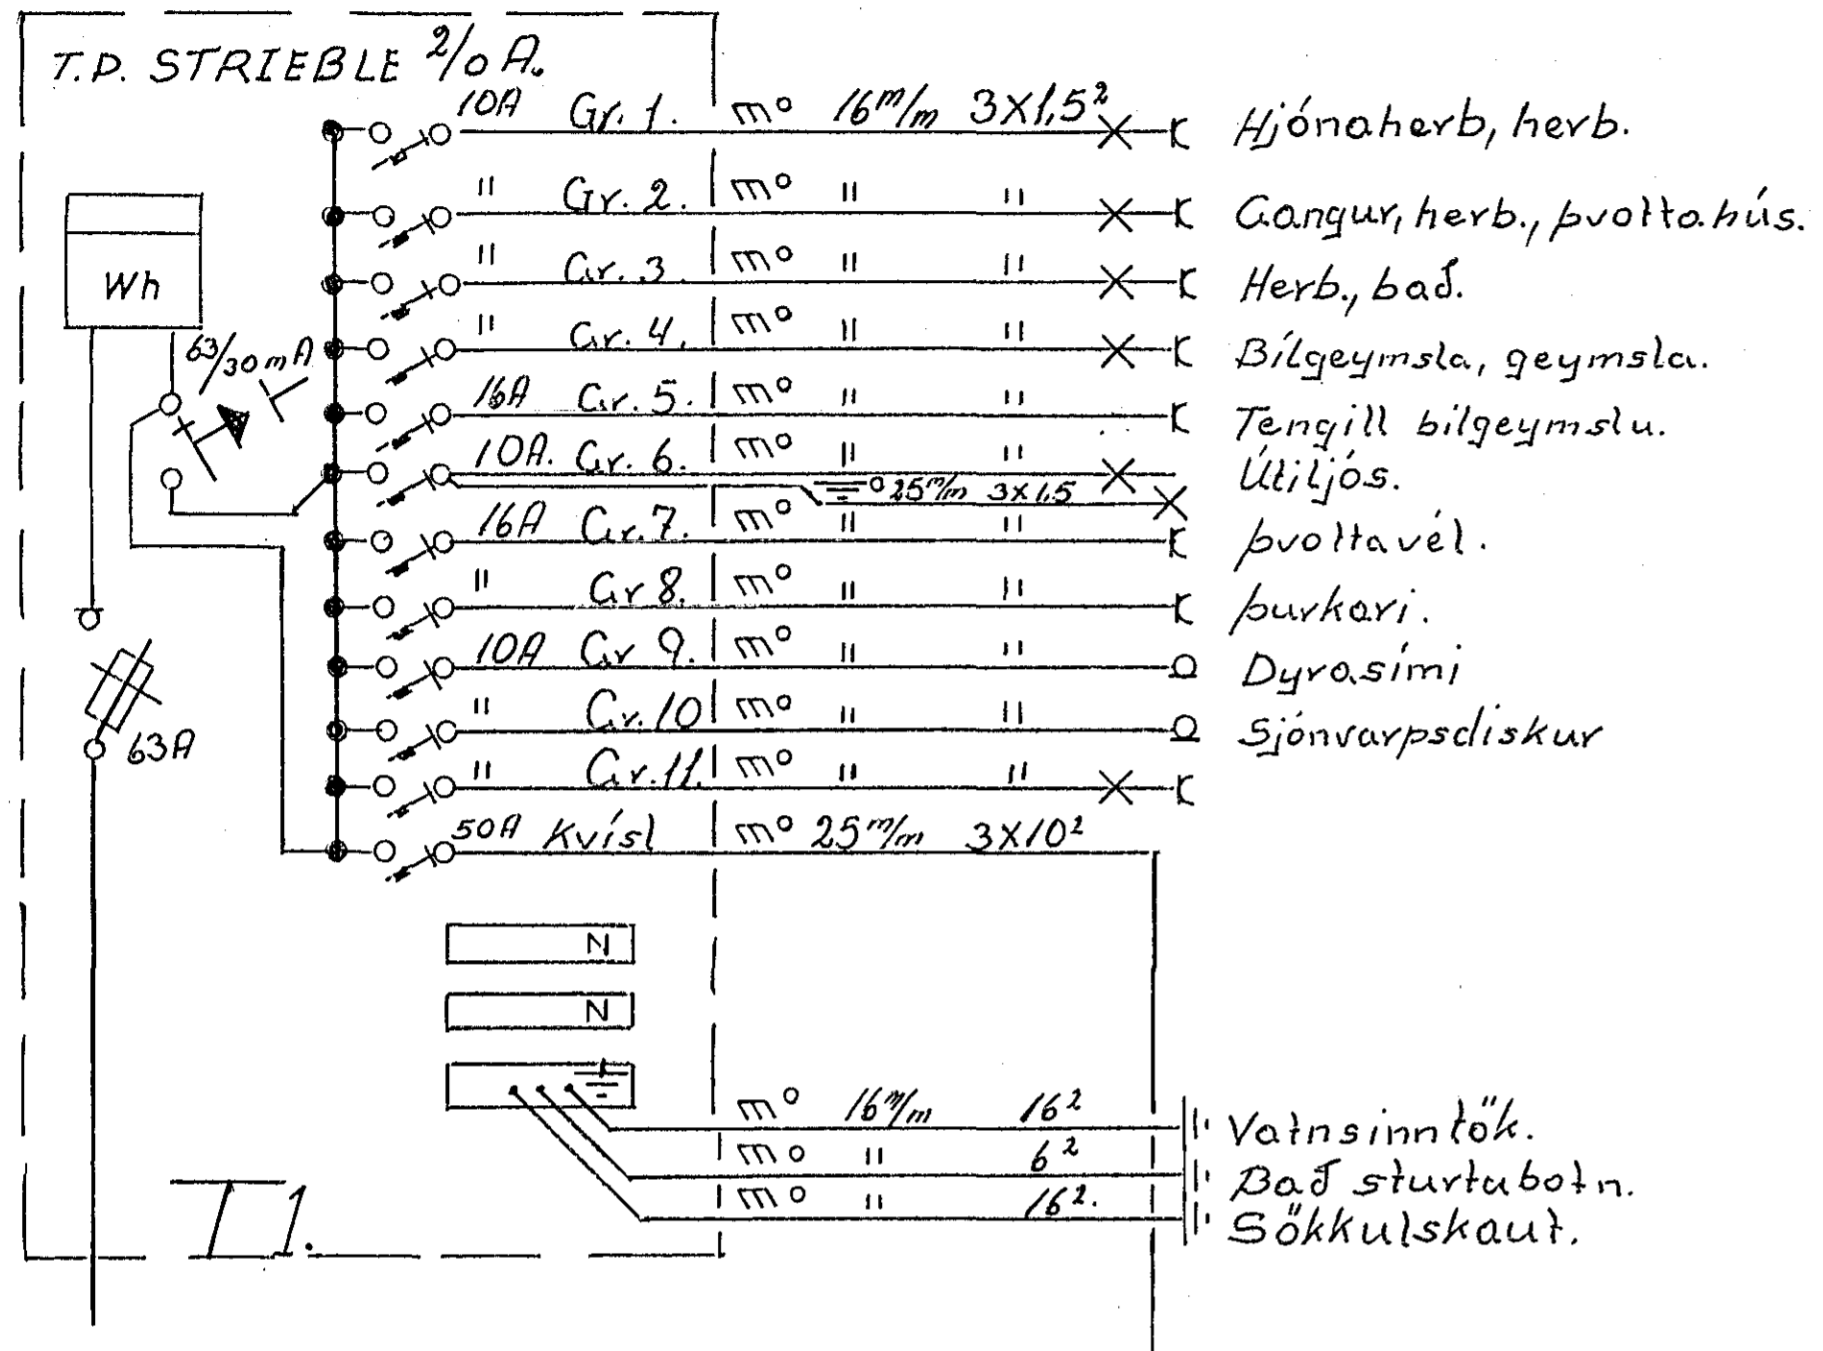 T.D. STRIEBLE 2/0 A.
10A Gr. 1. m° 16 m/m 3X1,5² Hjónaherb, herb.
" Gr. 2. m° " " Gangur, herb., þvottahús.
" Gr. 3. m° " " Herb., bað.
" Gr. 4. m° " " Bílgeymsla, geymsla.
16A Gr. 5. m° " " Tengill bílgeymslu.
10A. Gr. 6. m° " " Útiljós.
° 25 m/m 3X1,5
16A Gr. 7. m° " " þvottavél.
" Gr 8. m° " " þurkari.
10A Gr 9. m° " " Dyrasími
" Gr. 10 m° " " Sjónvarpsdiskur
" Gr. 11. m° " "
50A Kvísl m° 25 m/m 3X10²
Wh
63/30mA
63A
N
N
m° 16 m/m 16² Vatnsinntök.
m° " 6² Bað sturtubotn.
m° " 16². Sökkulskaut.
T1.